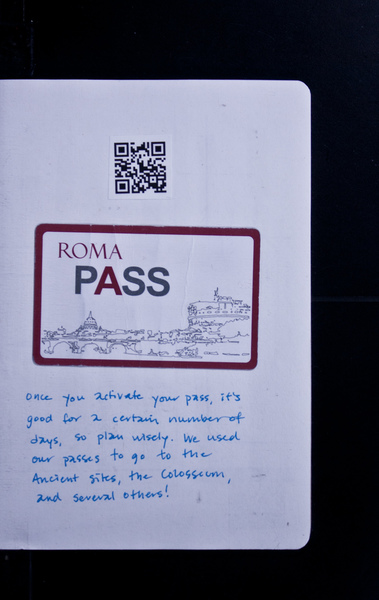 ROMA
PASS
Once you activate your pass, it's
good for a certain number of
days, so plan wisely. We used
our passes to go to the
Ancient sites, the Colosseum,
and several others!